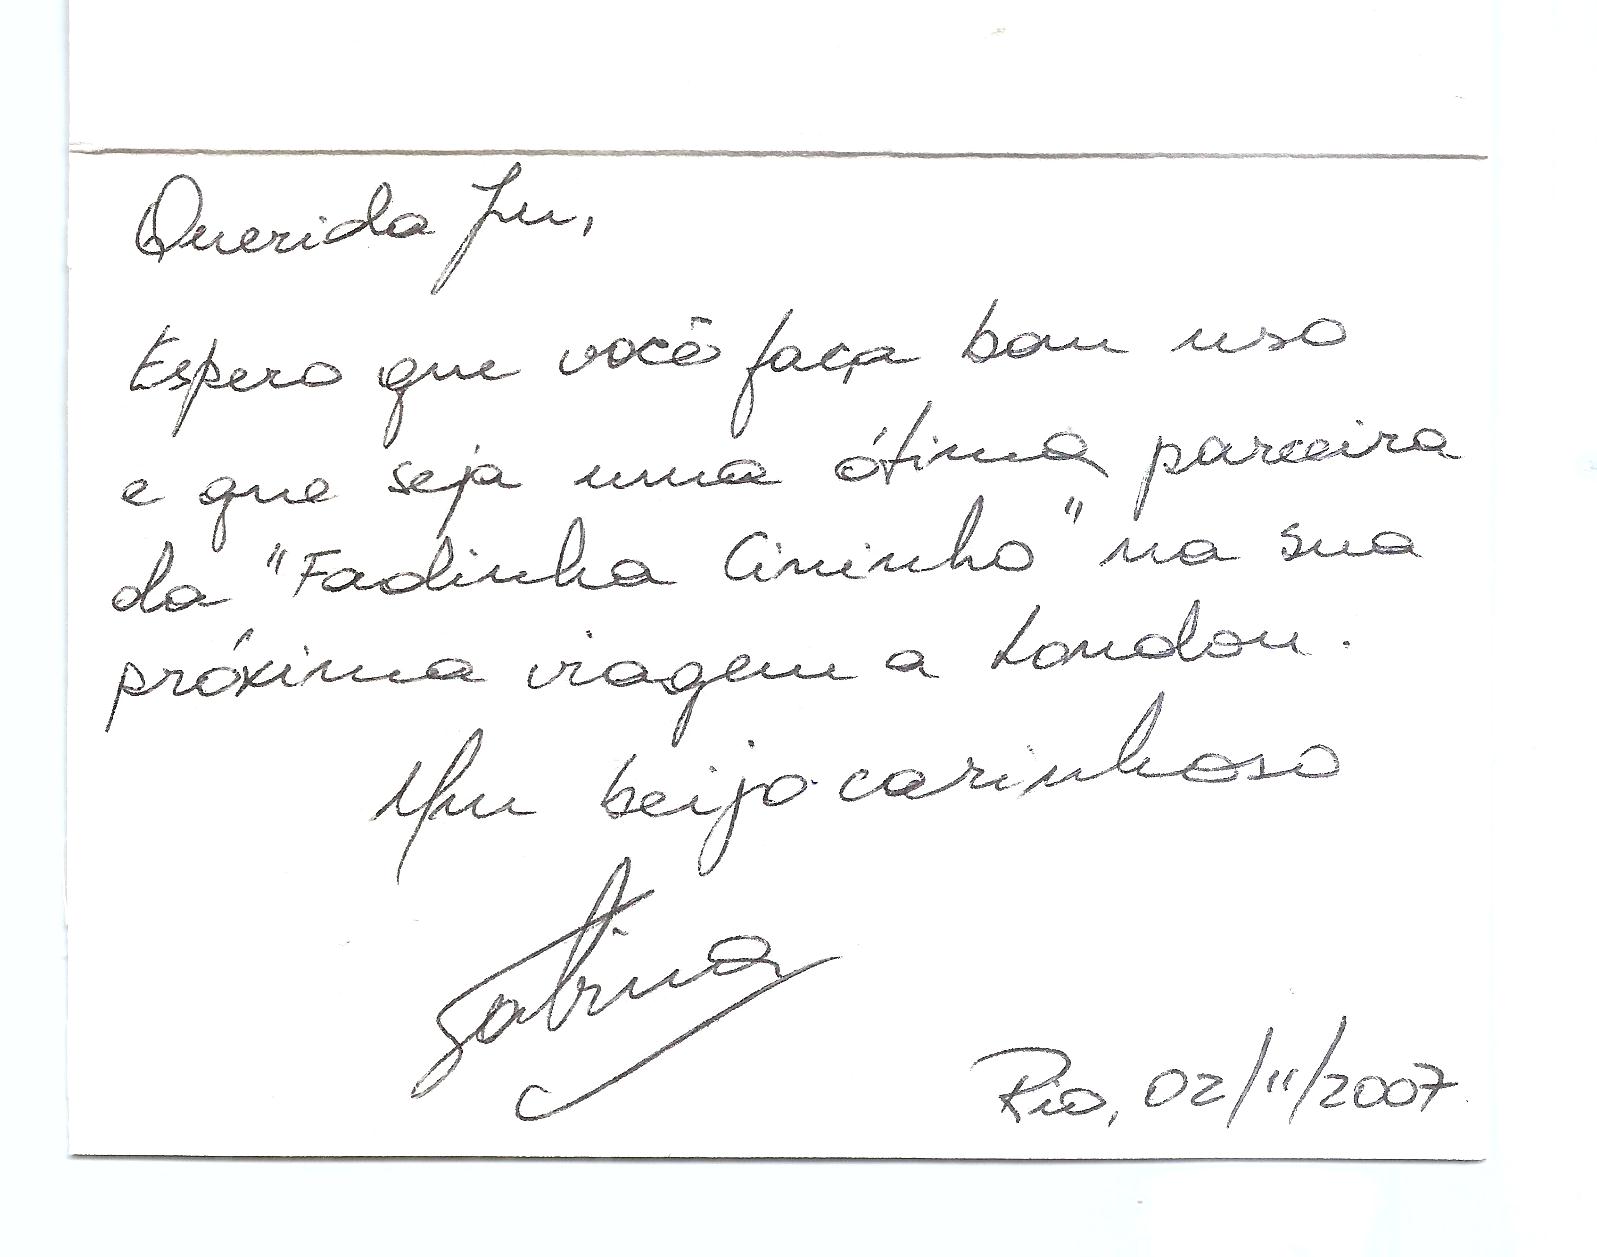 Querida Ju,
Espero que você faça bom uso
e que seja uma ótima parceira
da "Fadinha Cininho" na sua
próxima viagem a London.
Um beijo carinhoso
Sabrina
Rio, 02/11/2007